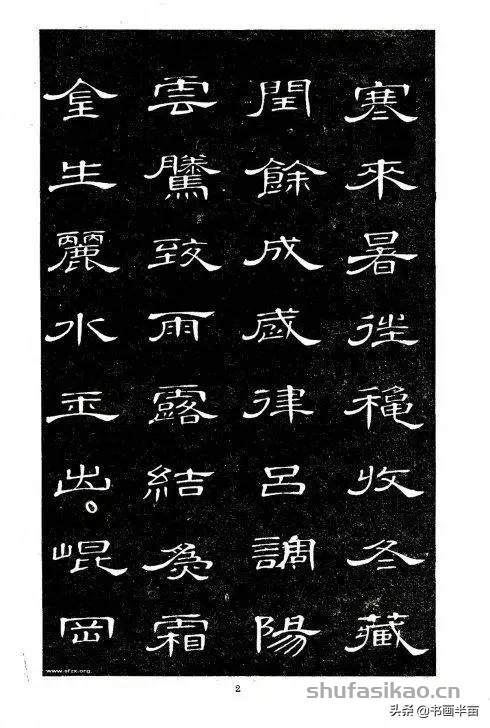 寒來暑往穐收冬藏
閏餘成歲律呂調陽
雲騰致雨露結為霜
金生麗水玉出崐岡
www.sfzx.org
2
shufasikao.cn
头条@书画半亩